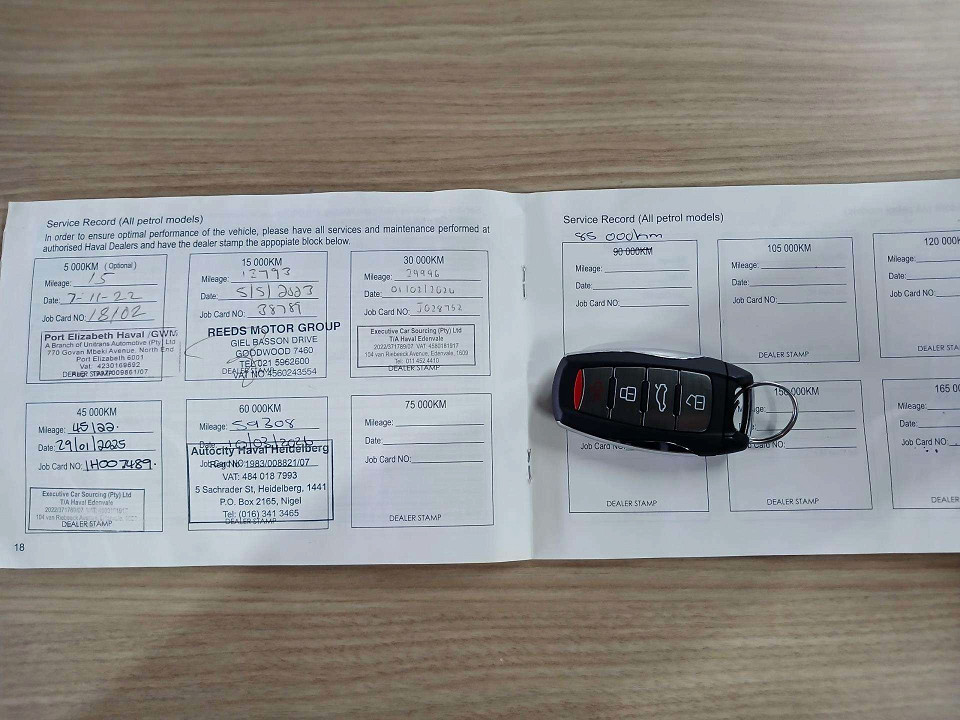 Service Record (All petrol models)
In order to ensure optimal performance of the vehicle, please have all services and maintenance performed at
authorised Haval Dealers and have the dealer stamp the appopiate block below.
5 000KM (Optional)
Mileage: 15
Date: 7-11-22
Job Card NO: 18102
Port Elizabeth Haval /GWM
A Branch of Unitrans Automotive (Pty) Ltd
770 Govan Mbeki Avenue, North End
Port Elizabeth 6001
Vat: 4230169692
DEALER STAMP
15 000KM
Mileage: 12793
Date: 5/5/2023
Job Card NO: 38789
REEDS MOTOR GROUP
GIEL BASSON DRIVE
GOODWOOD 7460
TEL 021 5962600
VAT NO 4560243554
DEALER STAMP
30 000KM
Mileage: 29946
Date: 01/02/2024
Job Card NO: J028752
Executive Car Sourcing (Pty) Ltd
T/A Haval Edenvale
2022/371789/07 VAT 4580181917
104 van Riebeeck Avenue, Edenvale, 1609
Tel: 011 452 4410
DEALER STAMP
45 000KM
Mileage: 45122.
Date: 29/01/2025
Job Card NO: 1H007489.
Executive Car Sourcing (Pty) Ltd
T/A Haval Edenvale
2022/371789/07
104 van Riebeeck
DEALER STAMP
60 000KM
Mileage: 59308
Date: 10/03/2026
Job Card NO:
Autocity Haval Heidelberg
Reg No. 1983/008821/07
VAT: 484 018 7993
5 Sachrader St, Heidelberg, 1441
P.O. Box 2165, Nigel
Tel: (016) 341 3465
DEALER STAMP
75 000KM
Mileage:
Date:
Job Card NO:
DEALER STAMP
18
Service Record (All petrol models)
85 000km
90 000KM
Mileage:
Date:
Job Card NO:
105 000KM
Mileage:
Date:
Job Card NO:
DEALER STAMP
120 000K
Mileage:
Date:
Job Card NO:
DEALER STA
Job Card NO:
DEALER STAMP
150 000KM
Mileage:
Date:
Job Card NO:
DEALER STAMP
165 00
Mileage:
Date:
Job Card NO:
DEALER